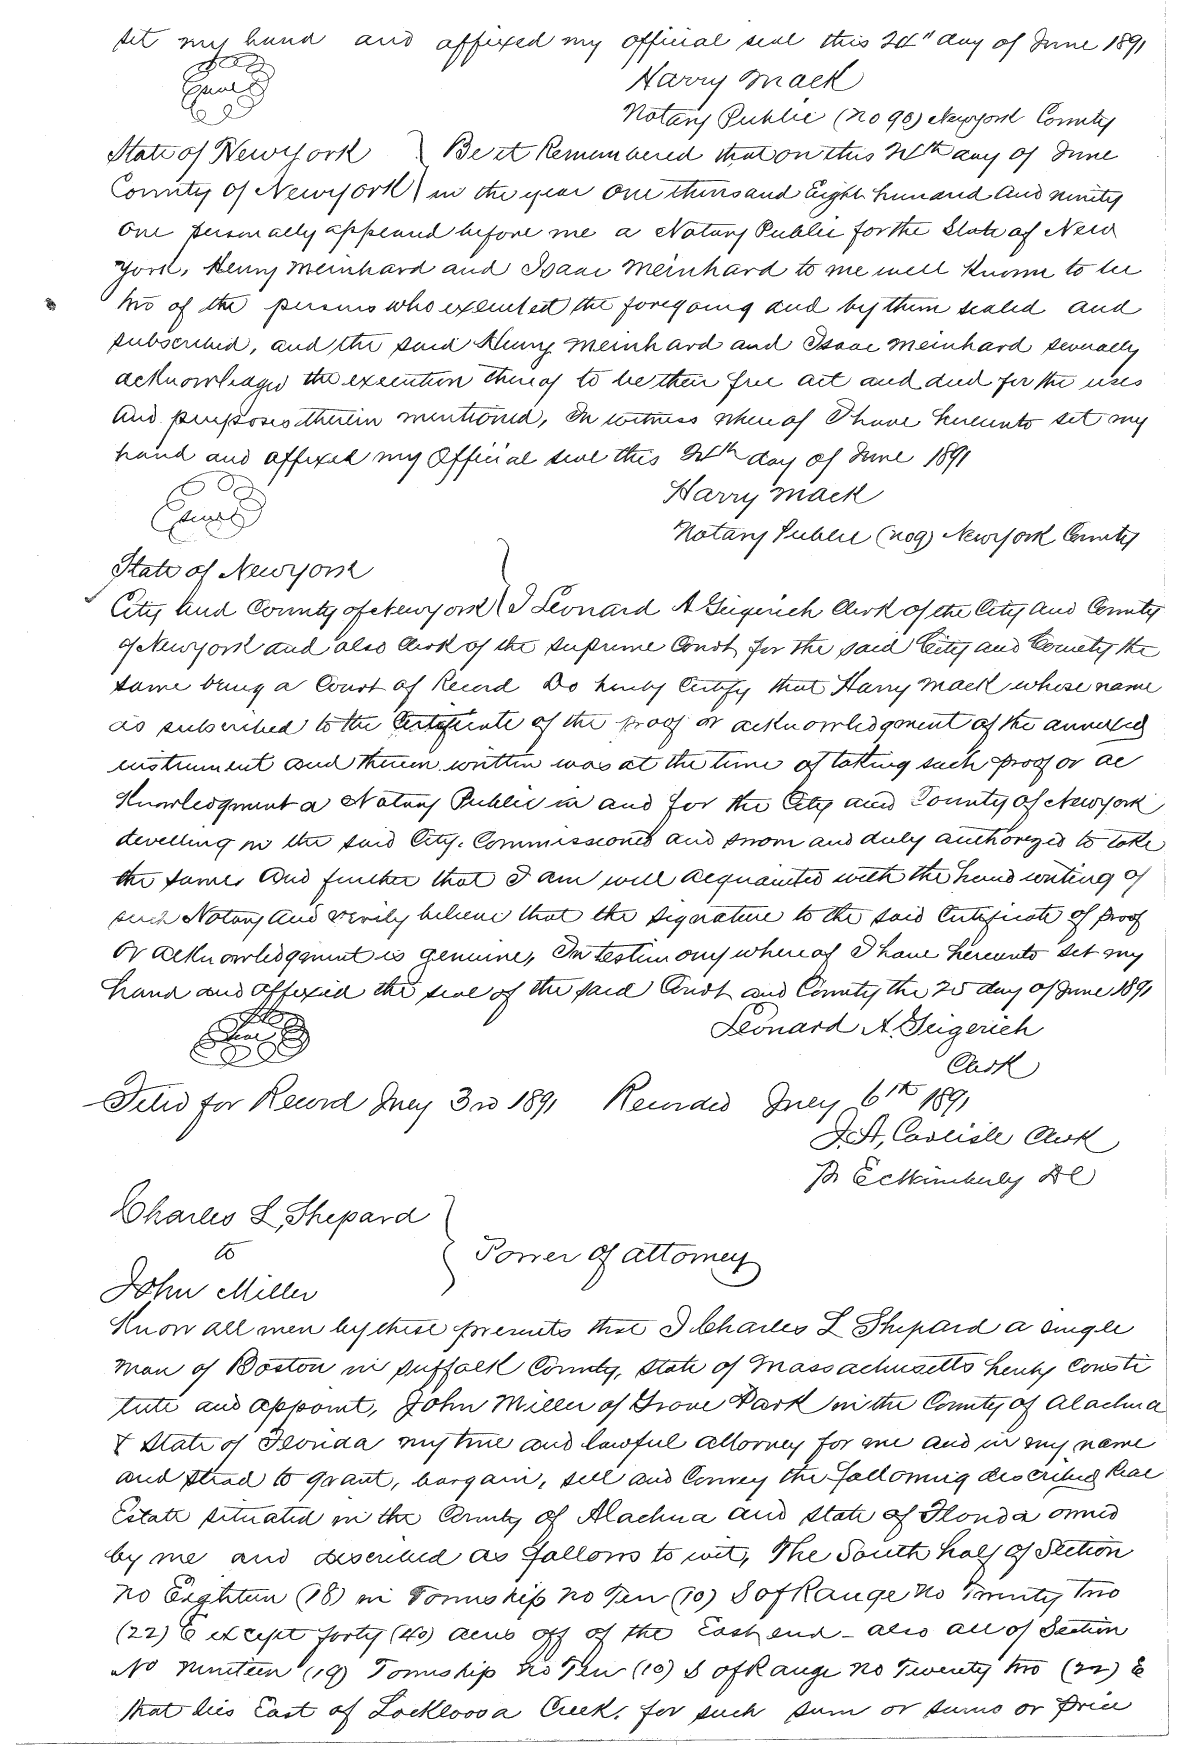 set my hand and affixed my official seal this 24" day of June 1891
Harry Mack
Notary Public (no 90) Newyork County
State of New York } Be it Remembered that on this 24th day of June
County of Newyork } in the year one thousand Eight hundred and ninety
one personally appeard before me a Notary Public for the State of New
York, Henry Meinhard and Isaac Meinhard to me well Known to be
two of the persons who executed the foregoing and by them sealed and
subscribed, and the said Henry Meinhard and Isaac Meinhard severally
acknowledged the execution thereof to be their free act and deed for the uses
and purposes therein mentioned, In witness where of I have hereunto set my
hand and affixed my Official seal this 24th day of June 1891
Harry Mack
Notary Public (no9) Newyork County
State of Newyork
City and County of Newyork } I Leonard A Geigerich Clerk of the City and County
of Newyork and also Clerk of the Supreme Court for the said City and County the
same being a Court of Record Do hereby Certify that Harry Mack whose name
is subscribed to the Certificate of the proof or acknowledgment of the annexed
instrument and therein written was at the time of taking such proof or ac
Knowledgment a Notary Public in and for the City and County of Newyork
dwelling in the said City. Commissioned and sworn and duly authorized to take
the same. And further that I am well acquainted with the hand writing of
such Notary and verily believe that the signature to the said Certificate of proof
or acknowledgment is genuine, In testimony where of I have hereunto set my
hand and affixed the seal of the said Court and County the 25 day of June 1891
Leonard A. Geigerich
Clerk
Filed for Record July 3rd 1891 Recorded July 6th 1891
J. A, Carlisle Clerk
Pr E C Wimberly DC
Charles L, Shepard
to } Power of attorney
John Miller
Know all men by these presents that I Charles L Shepard a single
man of Boston in Suffolk County, State of Massachusetts hereby Consti
tute and appoint, John Miller of Grove Park in the County of Alachua
& State of Florida my true and lawful attorney for me and in my name
and stead to grant, bargain, sell and Convey the following described Real
Estate situated in the County of Alachua and State of Florida owned
by me and described as follows to wit, The South half of Section
no Eighteen (18) in Township no Ten (10) S of Range no Twenty two
(22) E except forty (40) acres off of the East end - also all of Section
No nineteen (19) Township no Ten (10) S of Range no Twenty two (22) E
that lies East of Lockloosa Creek, for such sum or sums or price